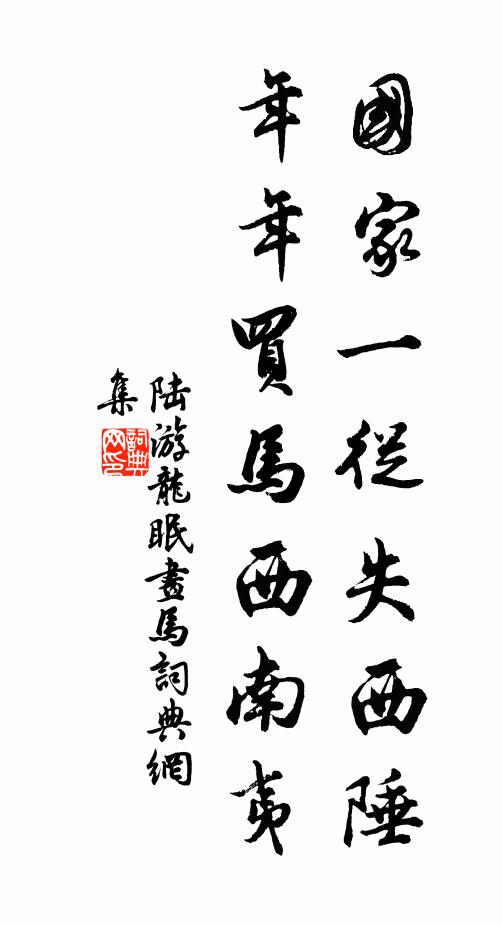 國家一從失西陲
年年買馬西南夷
陆游龍眠畫馬詞典網
集
詞典
网印